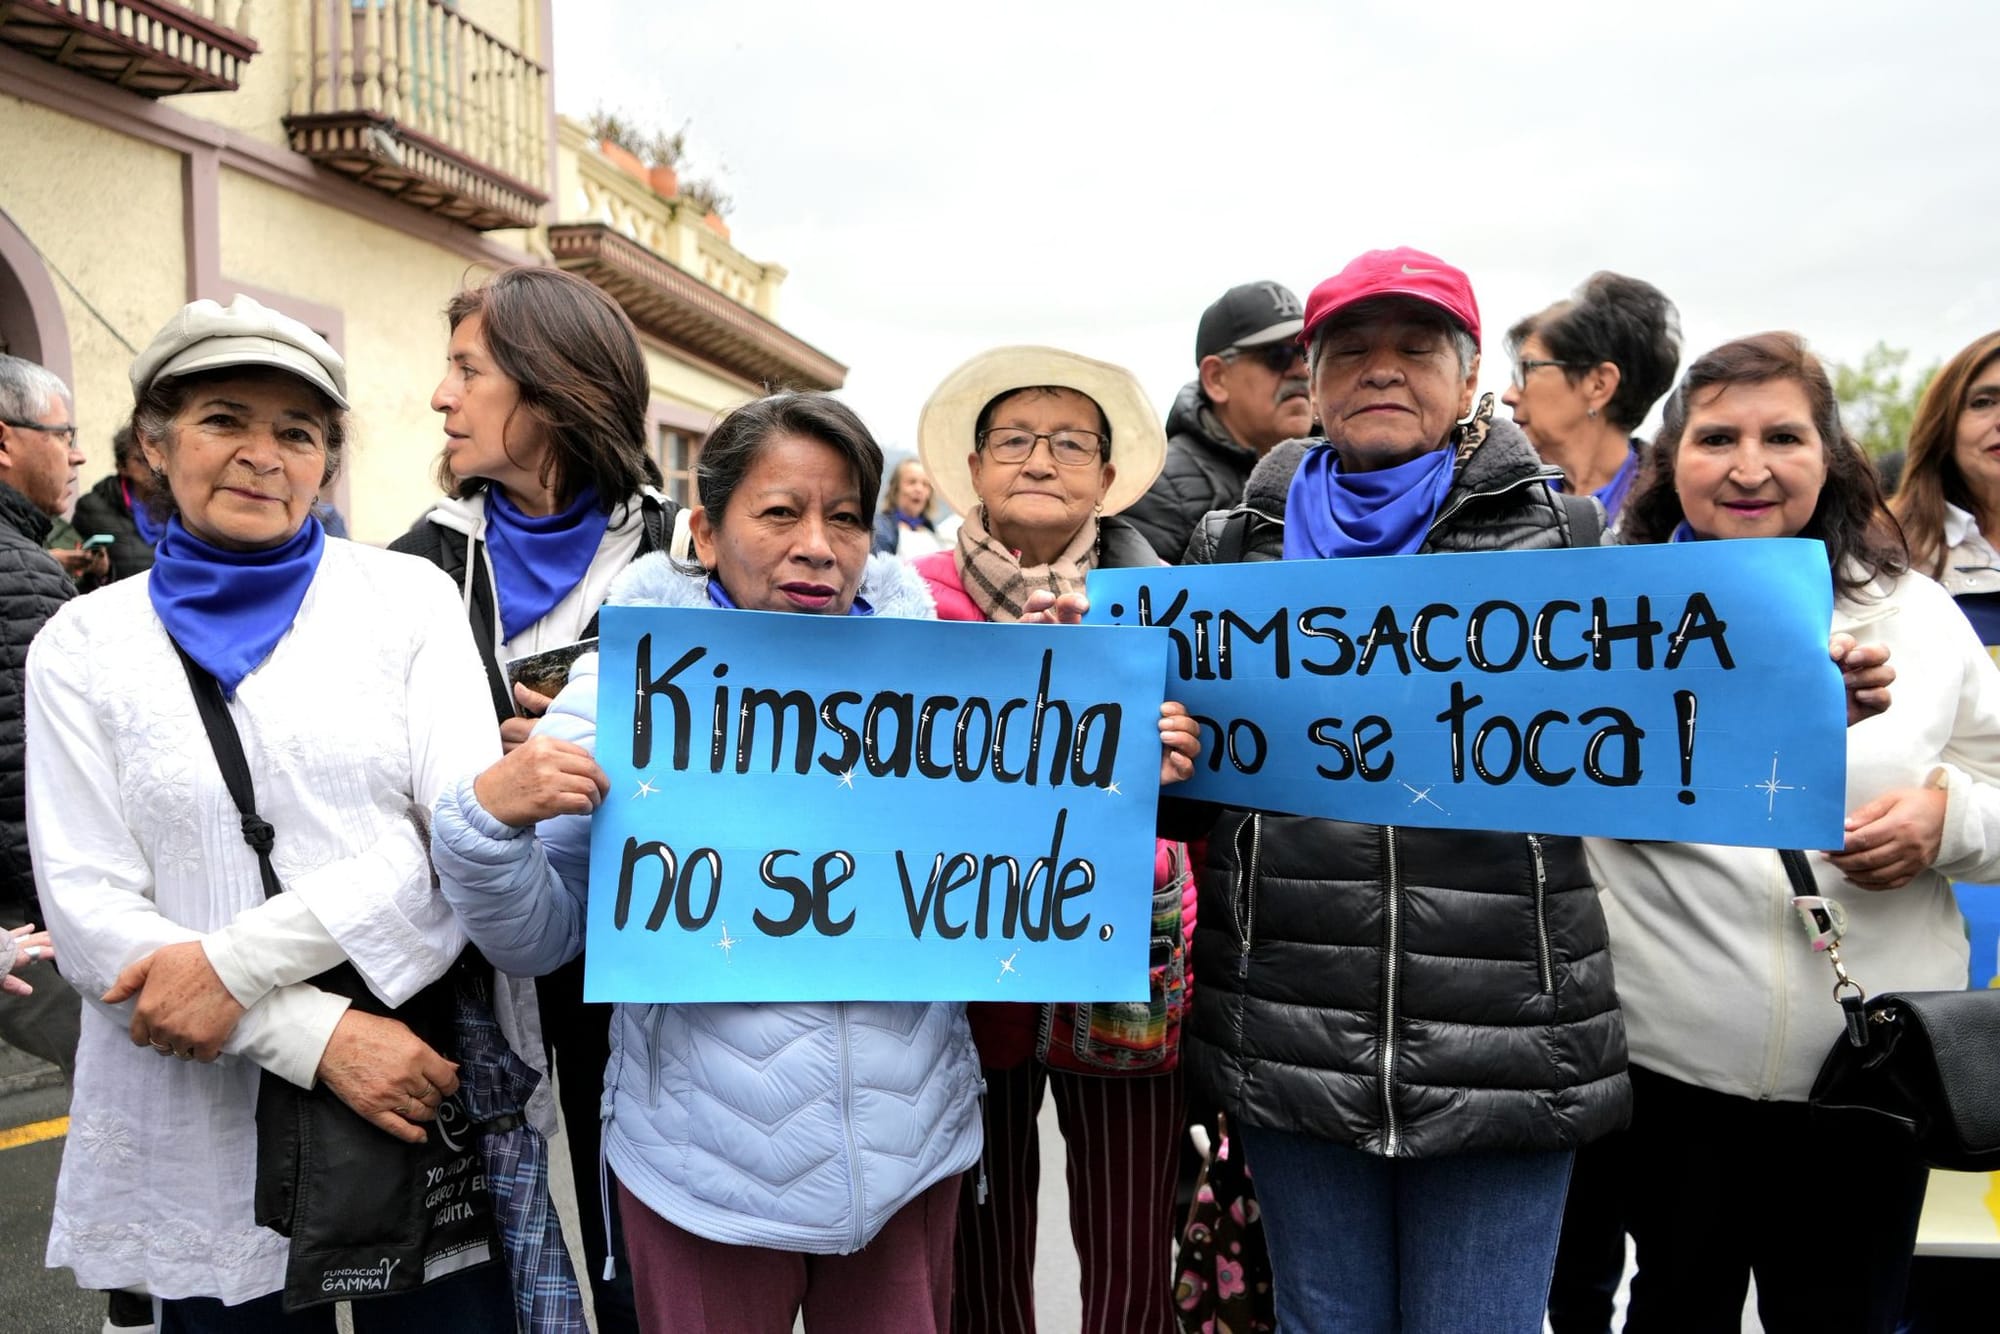 Kimsacocha
no se vende.
¡KIMSACOCHA
no se toca!
CERRO Y EL
FUNDACION
GAMMA
LA